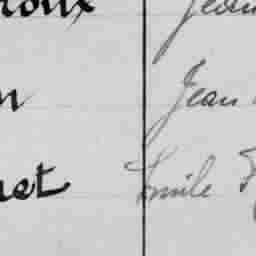 roux Jean
n Jean
net Emile